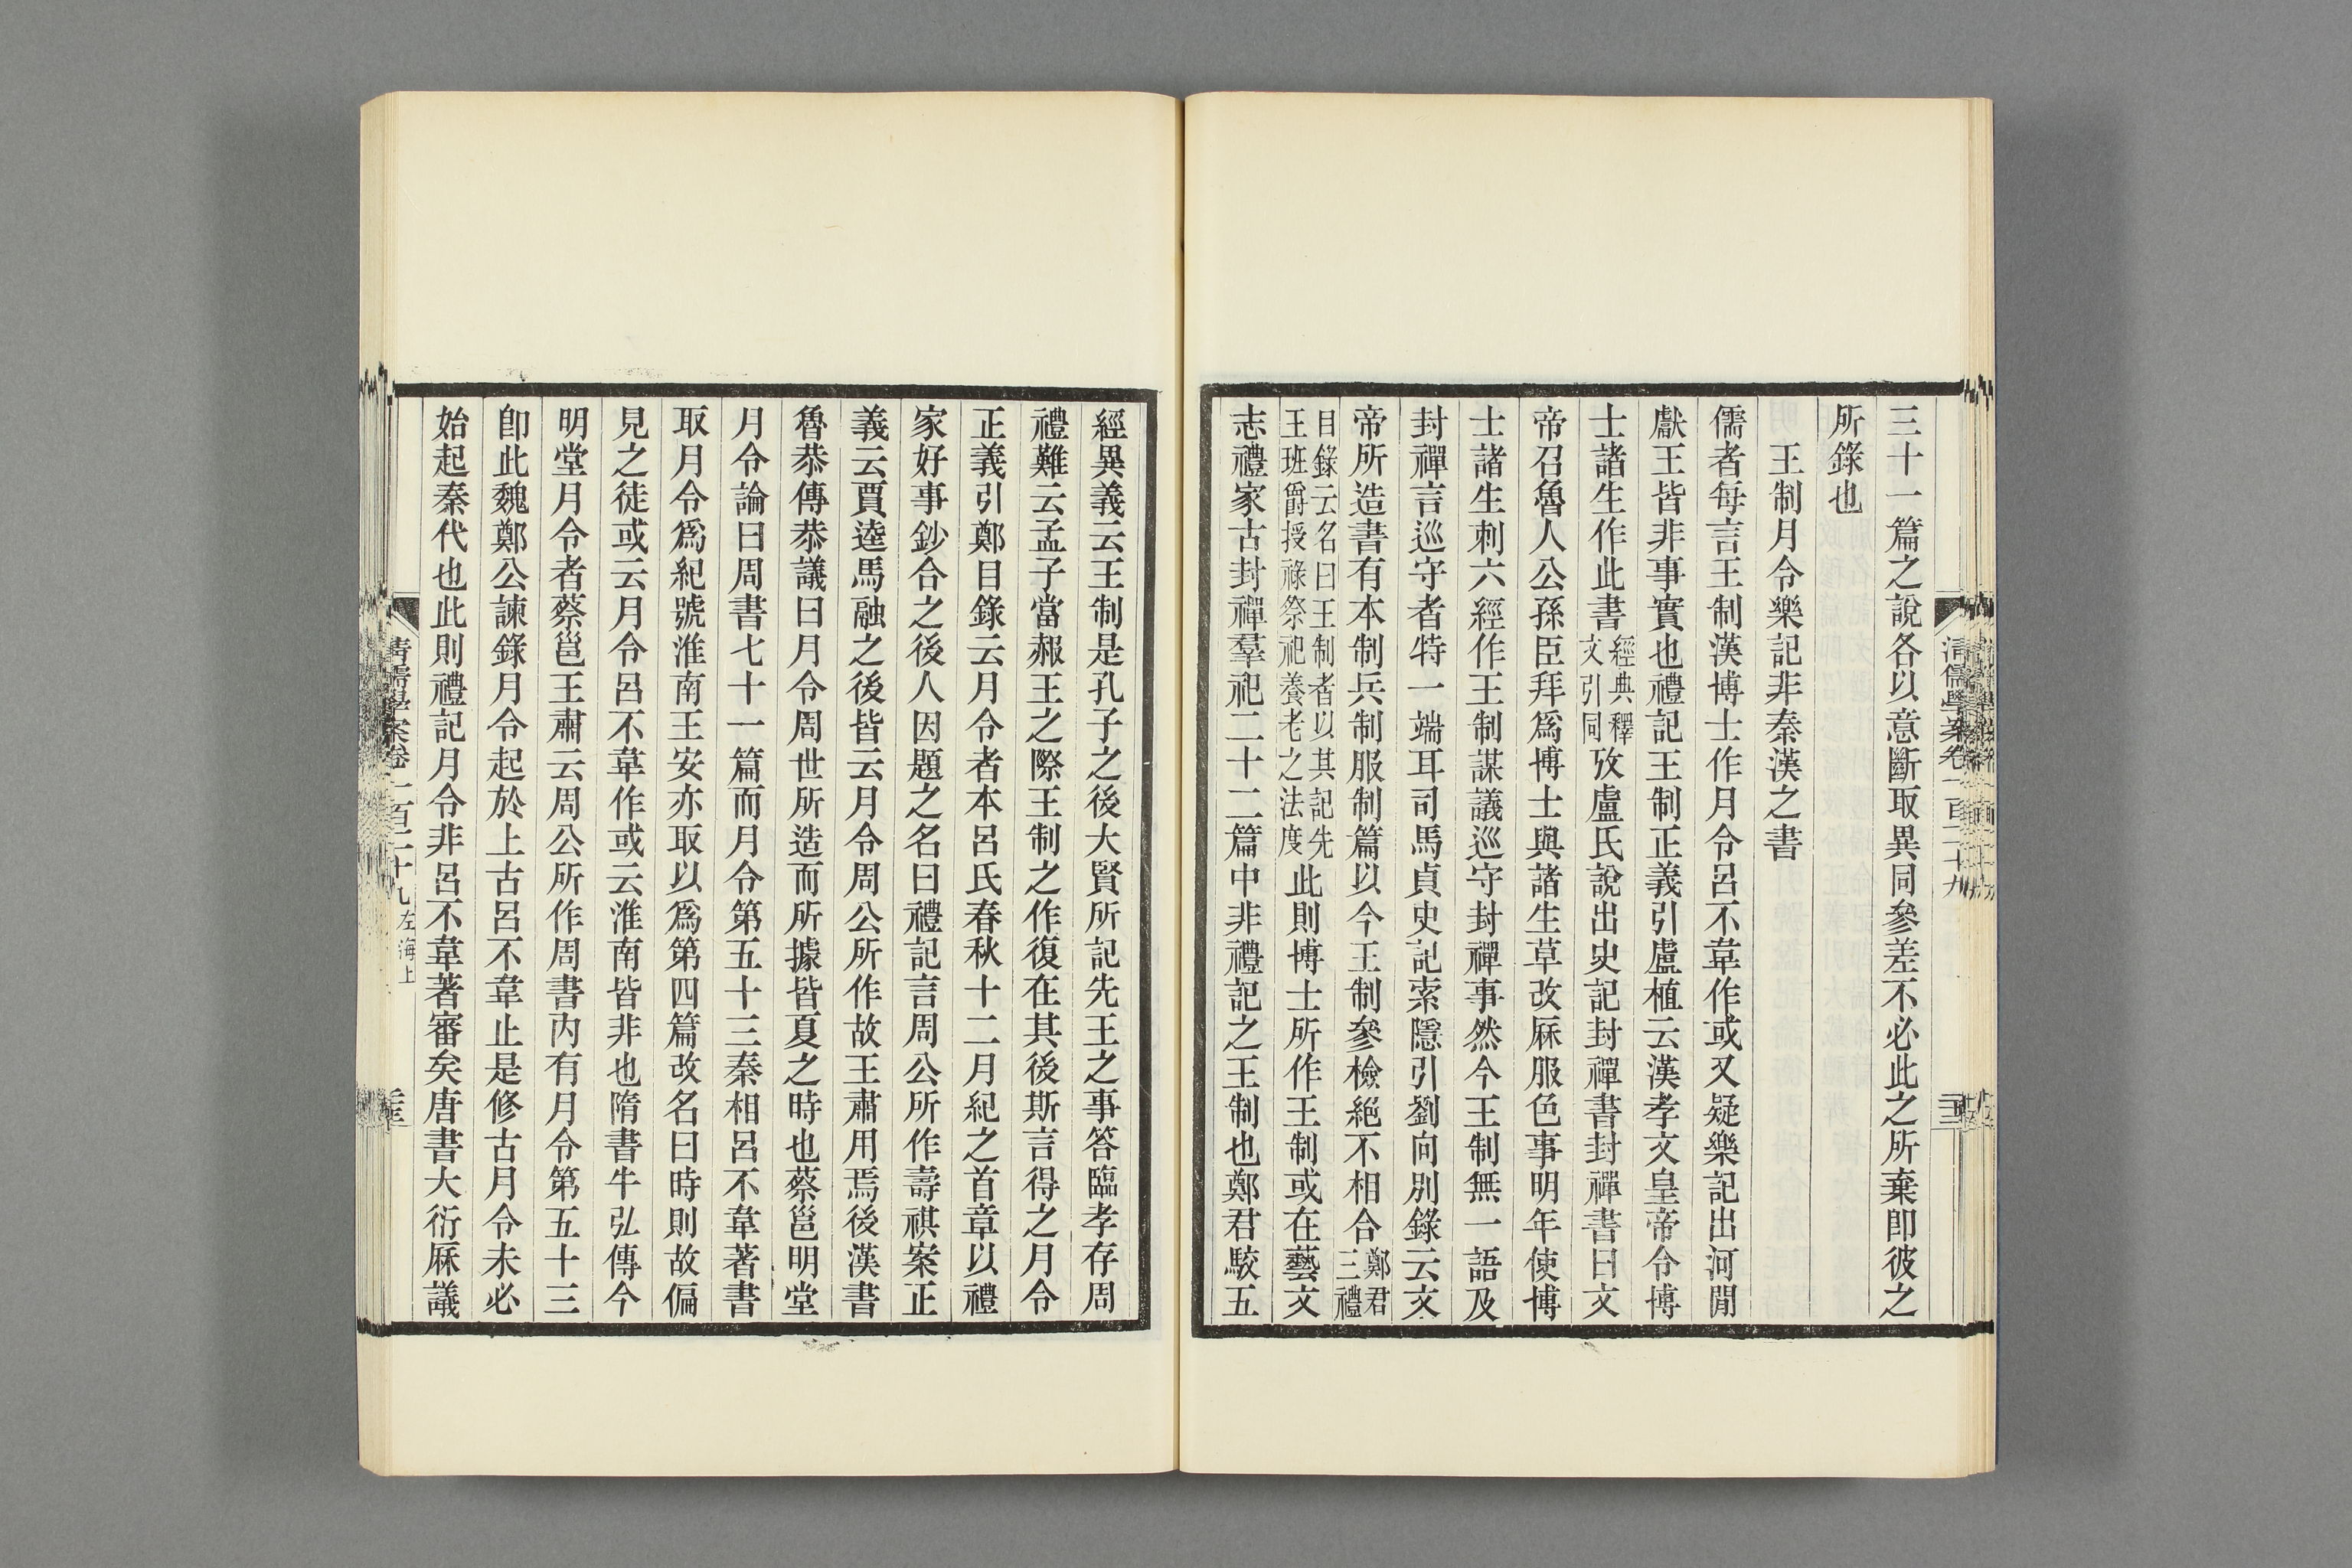 三十一篇之說各以意斷取異同參差不必此之所棄卽彼之
所錄也
王制月令樂記非秦漢之書
儒者每言王制漢博士作月令呂不韋作或又疑樂記出河閒
獻王皆非事實也禮記王制正義引盧植云漢孝文皇帝令博
士諸生作此書經典釋文引同攷盧氏說出史記封禪書封禪書曰文
帝召魯人公孫臣拜爲博士與諸生草改厤服色事明年使博
士諸生刺六經作王制謀議巡守封禪事然今王制無一語及
封禪言巡守者特一端耳司馬貞史記索隱引劉向別錄云文
帝所造書有本制兵制服制篇以今王制參檢絕不相合鄭君三禮
目錄云名曰王制者以其記先王班爵授祿祭祀養老之法度此則博士所作王制或在藝文
志禮家古封禪羣祀二十二篇中非禮記之王制也鄭君駮五
經異義云王制是孔子之後大賢所記先王之事答臨孝存周
禮難云孟子當赧王之際王制之作復在其後斯言得之月令
正義引鄭目錄云月令者本呂氏春秋十二月紀之首章以禮
家好事鈔合之後人因題之名曰禮記言周公所作壽祺案正
義云賈逵馬融之後皆云月令周公所作故王肅用焉後漢書
魯恭傳恭議曰月令周世所造而所據皆夏之時也蔡邕明堂
月令論曰周書七十一篇而月令第五十三秦相呂不韋著書
取月令爲紀號淮南王安亦取以爲第四篇改名曰時則故偏
見之徒或云月令呂不韋作或云淮南皆非也隋書牛弘傳今
明堂月令者蔡邕王肅云周公所作周書內有月令第五十三
卽此魏鄭公諫錄月令起於上古呂不韋止是修古月令未必
始起秦代也此則禮記月令非呂不韋著審矣唐書大衍厤議
清儒學案卷一百二十九
清儒學案卷一百二十九 左海上